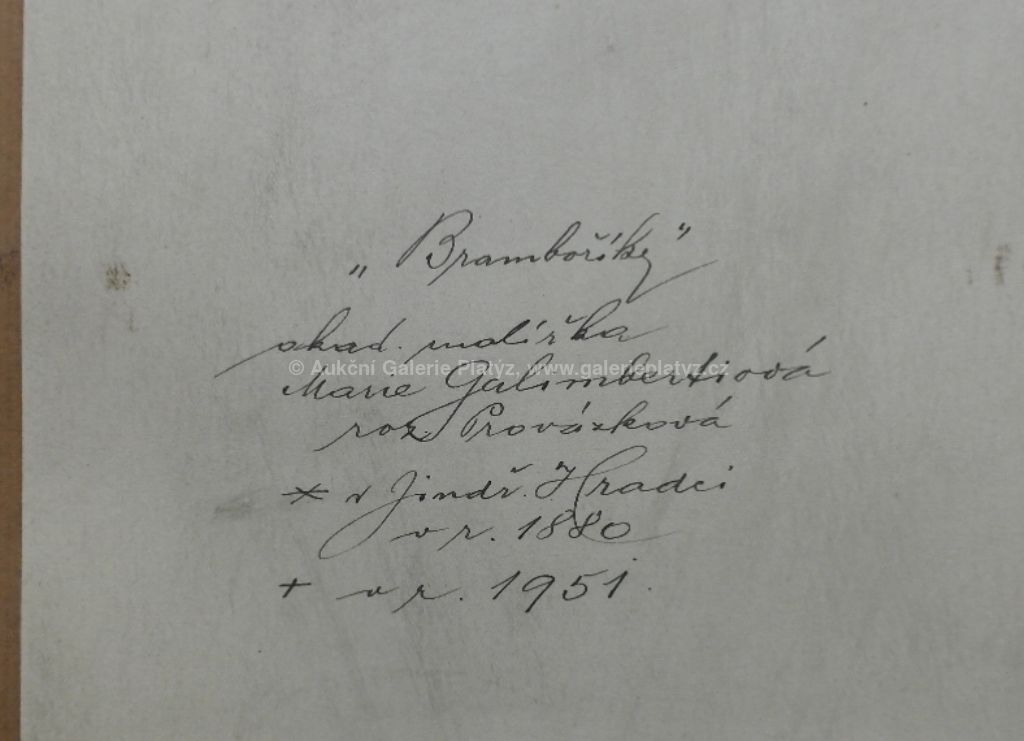 „Bramboříky"
akad. malířka
© Aukční Galerie Platýz, www.galerieplatyz.cz
Marie Galimbertiová
roz. Provázková
* v Jindř. Hradci
v r. 1880
+ v r. 1951.